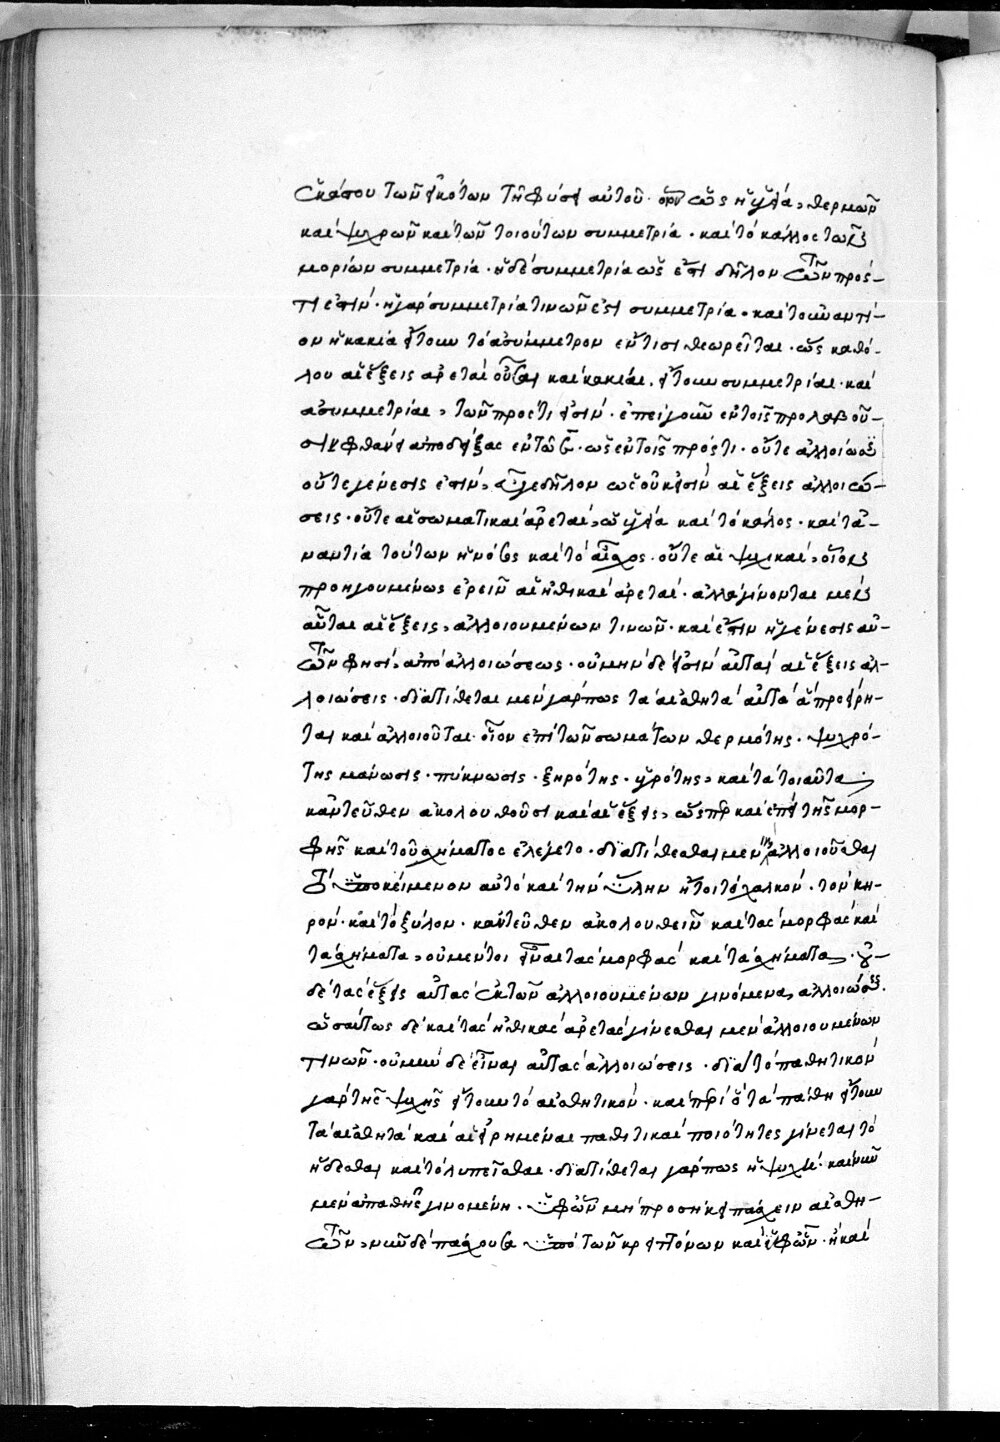 ἑκάστου τῶν εἰκότων τῇ φύσει αὐτοῦ· οἷον ὡς ἡ ὑγεία, θερμῶν
καὶ ψυχρῶν καὶ τῶν τοιούτων συμμετρία· καὶ τὸ κάλλος τῶν
μορίων συμμετρία· ἡ δὲ συμμετρία ὡς ἔστι δῆλον τῶν πρός
τι ἐστίν· ἡ γὰρ συμμετρία τινῶν ἐστι συμμετρία· καὶ τοὐναντί-
ον ἡ κακία ἤτουν τὸ ἀσύμμετρον ἔν τισι θεωρεῖται· ὡς καθό-
λου αἱ ἕξεις ἀρεταὶ οὖσαι καὶ κακίαι, ἤτουν συμμετρίαι καὶ
ἀσυμμετρίαι, τῶν πρός τι εἰσίν· ἐπεὶ γοῦν ἐν τοῖς προλαβοῦ-
σιν φθάνει ἀποδείξας ὡς ἐν τοῖς πρός τι οὔτε ἀλλοίωσις
οὔτε γένεσις ἐστίν, δῆλον ὡς οὐκ εἰσὶν αἱ ἕξεις ἀλλοιώ-
σεις· οὔτε αἱ σωματικαὶ ἀρεταί, ὡς ὑγεία καὶ τὸ κάλλος· καὶ τἀ-
ναντία τούτων ἡ νόσος καὶ τὸ αἶσχος· οὔτε αἱ ψυχικαί,
προηγουμένως ἐρεῖν αἱ ἠθικαὶ ἀρεταί· ἀλλὰ γίνονται μὲν
αὗται αἱ ἕξεις, ἀλλοιουμένων τινῶν· καὶ ἔστιν ἡ γένεσις αὐ-
τῶν φησὶν ἀπὸ ἀλλοιώσεως· οὐ μὴν δὲ εἰσὶν αὗται αἱ ἕξεις ἀλ-
λοιώσεις· διατίθεται μὲν γάρ πως τὰ αἰσθητὰ αὐτὰ ἃ προείρη-
ται καὶ ἀλλοιοῦται· οἷον ἐπὶ τῶν σωμάτων θερμότης· ψυχρό-
της μάνωσις· πύκνωσις· ξηρότης· ὑγρότης, καὶ τὰ τοιαῦτα,
κἀντεῦθεν ἀκολουθοῦσι καὶ αἱ ἕξεις, ὥσπερ καὶ ἐπὶ τῆς μορ-
φῆς καὶ τοῦ σχήματος ἐλέγετο· διατίθεσθαι μὲν ἀλλοιοῦσθαι
τὸ ὑποκείμενον αὐτὸ καὶ τὴν ὕλην ἤτοι τὸ χαλκόν· τὸν κη-
ρόν· καὶ τὸ ξύλον· κἀντεῦθεν ἀκολουθεῖν καὶ τὰς μορφὰς καὶ
τὰ σχήματα, οὐ μέντοι εἶναι τὰς μορφὰς καὶ τὰ σχήματα· οὐ-
δὲ τὰς ἕξεις αὐτὰς ἐκ τῶν ἀλλοιουμένων γινομένας ἀλλοιώσεις.
ὡσαύτως δὲ καὶ τὰς ἠθικὰς ἀρετὰς γίνεσθαι μὲν ἀλλοιουμένων
τινῶν· οὐ μὴν δὲ εἶναι αὐτὰς ἀλλοιώσεις· διὰ τὸ παθητικὸν
γὰρ τῆς ψυχῆς ἤτουν τὸ αἰσθητικόν· καὶ περὶ ὃ τὰ πάθη ἤτουν
τὰ αἰσθητὰ καὶ αἱ εἰρημέναι παθητικαὶ ποιότητες γίνεται τὸ
ἥδεσθαι καὶ τὸ λυπεῖσθαι· διατίθεται γάρ πως ἡ ψυχή· καὶ νῦν
μὲν ἀπαθὴς γινομένη· ὑφ' ὧν μὴ προσήκει πάσχειν αἰσθη-
τῶν, νῦν δὲ πάσχουσα ὑπὸ τῶν κρειττόνων καὶ ἐφ' ὧν· ἢ καὶ